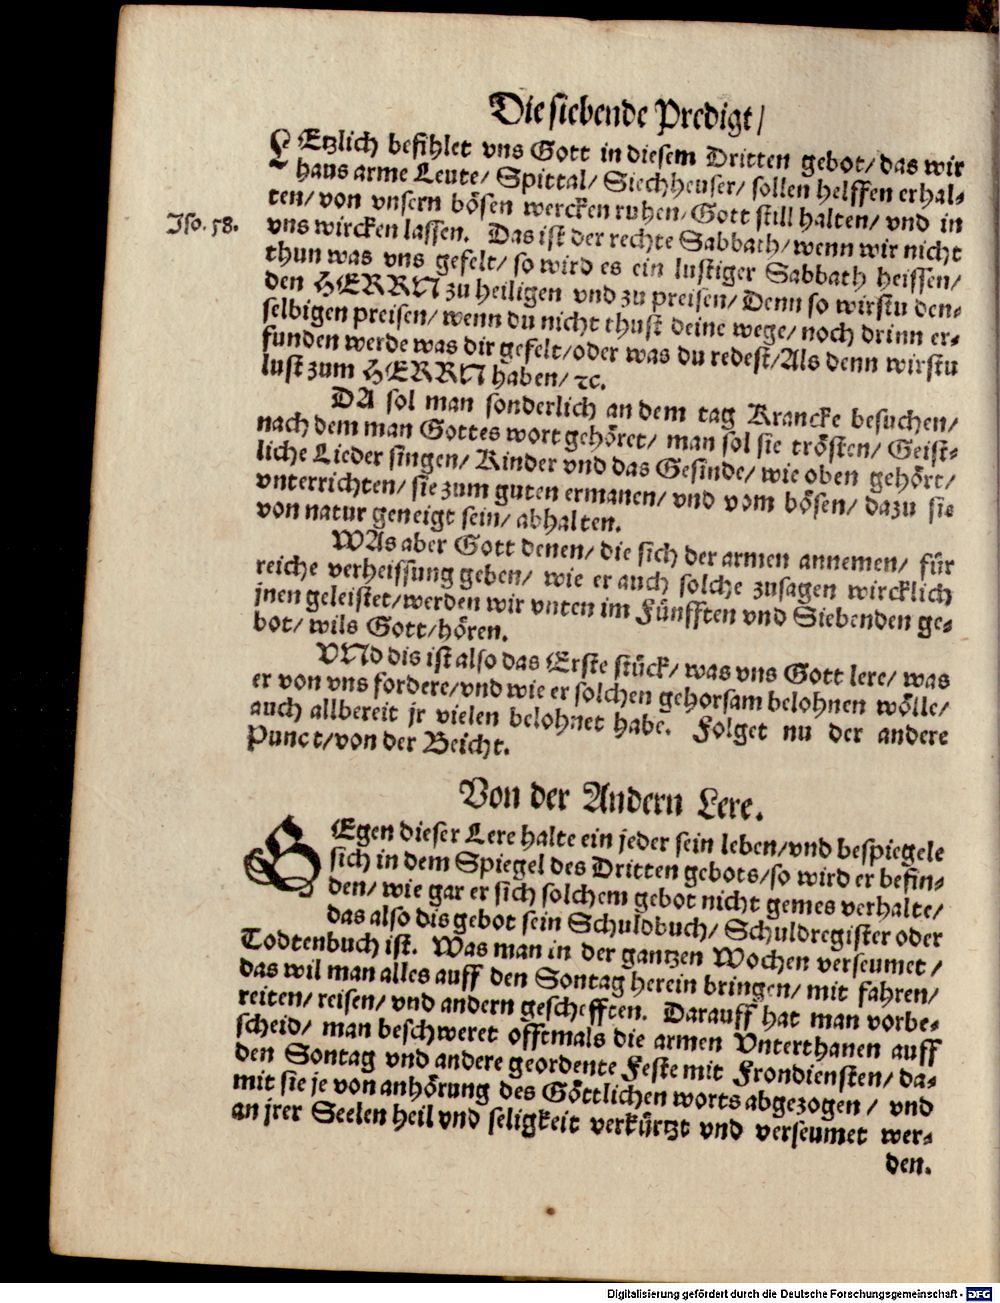 Die siebende Predigt/
LEtzlich befihlet vns Gott in diesem Dritten gebot/ das wir
haus arme Leute/ Spittal/ Siechheuser/ sollen helffen erhal-
ten/ von vnsern bösen wercken ruhen/ Gott still halten/ vnd in
Jso. 58.
vns wircken lassen. Das ist der rechte Sabbath/ wenn wir nicht
thun was vns gefelt/ so wird es ein lustiger Sabbath heissen/
den HERRN zu heiligen vnd zu preisen/ Denn so wirstu den-
selbigen preisen/ wenn du nicht thust deine wege/ noch drinn er-
funden werde was dir gefelt/ oder was du redest/ Als denn wirstu
lust zum HERRN haben/ ꝛc.
DA sol man sonderlich an dem tag Krancke besuchen/
nach dem man Gottes wort gehöret/ man sol sie trösten/ Geist-
liche Lieder singen/ Kinder vnd das Gesinde/ wie oben gehört/
vnterrichten/ sie zum guten ermanen/ vnd vom bösen/ dazu sie
von natur geneigt sein/ abhalten.
WAs aber Gott denen/ die sich der armen annemen/ für
reiche verheissung geben/ wie er auch solche zusagen wircklich
jnen geleistet/ werden wir vnten im Fünfften vnd Siebenden ge-
bot/ wils Gott/ hören.
VNd dis ist also das Erste stück/ was vns Gott lere/ was
er von vns fordere/ vnd wie er solchen gehorsam belohnen wölle/
auch allbereit jr vielen belohnet habe. Folget nu der andere
Punct/ von der Beicht.
Von der Andern Lere.
GEgen dieser Lere halte ein jeder sein leben/ vnd bespiegele
sich in dem Spiegel des Dritten gebots/ so wird er befin-
den/ wie gar er sich solchem gebot nicht gemes verhalte/
das also dis gebot sein Schuldbuch/ Schuldregister oder
Todtenbuch ist. Was man in der gantzen Wochen verseumet/
das wil man alles auff den Sontag herein bringen/ mit fahren/
reiten/ reisen/ vnd andern geschefften. Darauff hat man vorbe-
scheid/ man beschweret offtmals die armen Vnterthanen auff
den Sontag vnd andere geordente Feste mit Frondiensten/ da-
mit sie je von anhörung des Göttlichen worts abgezogen/ vnd
an jrer Seelen heil vnd seligkeit verkürtzt vnd verseumet wer-
den.
Digitalisierung gefördert durch die Deutsche Forschungsgemeinschaft - DFG